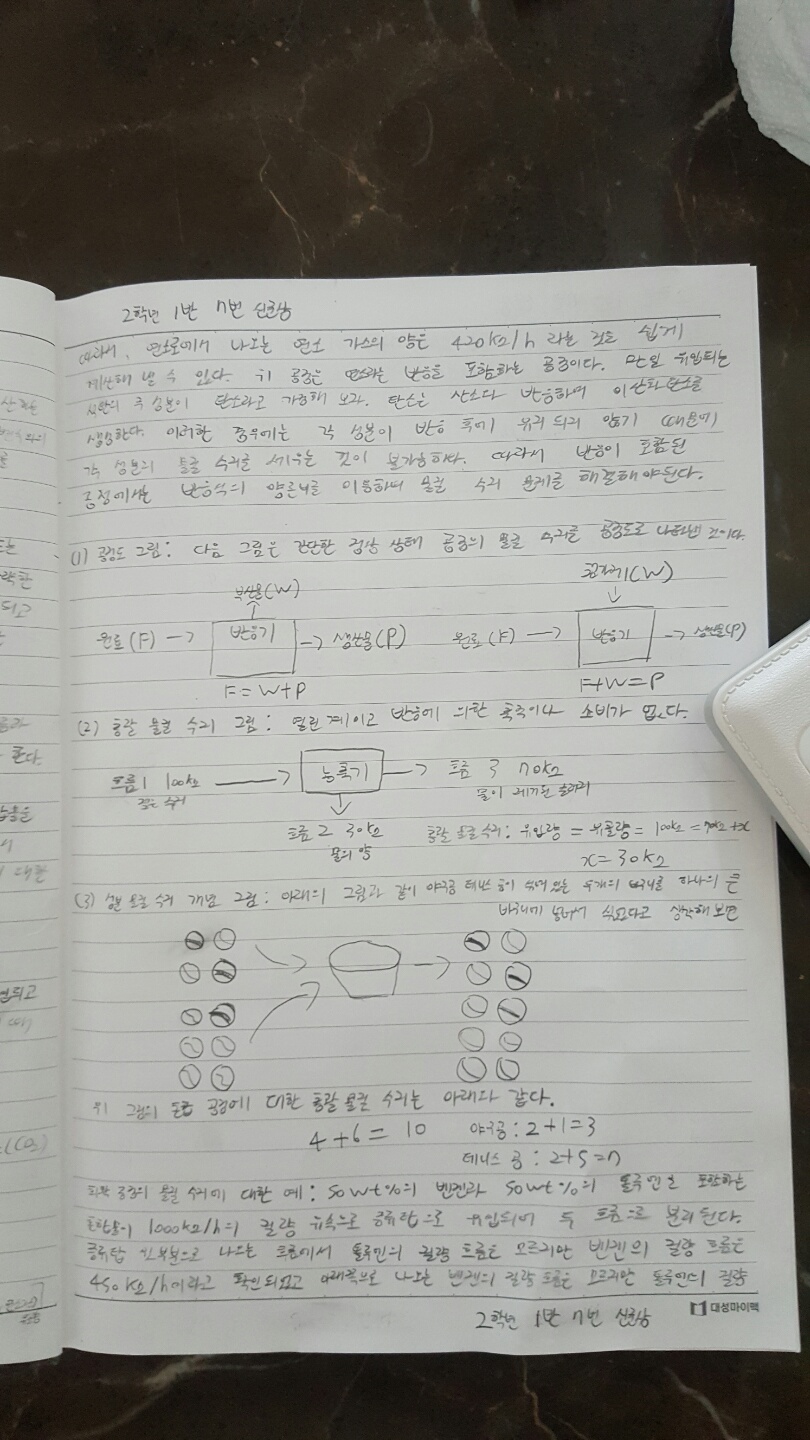 2학년 1반 7번
따라서, 연소로에서 나오는 연소 가스의 양은 420kg/h 라는 것을 쉽게
계산해 낼 수 있다. 위 공정은 연소라는 반응을 포함하는 공정이다. 만일 유입되는
석탄의 주 성분이 탄소라고 가정해 보자. 탄소는 산소와 반응하며 이산화탄소를
생성한다. 이러한 경우에는 각 성분이 반응 후에 유지 되지 않기 때문에
각 성분의 물질 수지를 세우는 것이 불가능하다. 따라서 반응이 포함된
공정에서는 반응식의 양론비를 이용하여 물질 수지 문제를 해결해야된다.
(1) 공정도 그림: 다음 그림은 간단한 정상 상태 공정의 물질 수지를 공정도로 나타낸 것이다.
부산물(W)
원료(F) → 반응기 → 생산물(P)
F = W+P
(W)
원료(F) → 반응기 → 생산물(P)
F+W=P
(2) 총괄 물질 수지 그림: 열린계이고 반응에 의한 축적이나 소비가 없다.
흐름1 100kg → 농축기 → 흐름 3 70kg
물이 제거된
흐름 2 30kg
물의 양
총괄 물질수지: 유입량 = 유출량 = 100kg = 70kg +x
x = 30kg
(3) 성분 물질 수지 개념 그림: 아래의 그림과 같이 야구공 테니스 공이 섞여 있는 두개의 바구니를 하나의 큰
바구니에 넣어서 섞는다고 생각해 보면
위 그림의 혼합 공정에 대한 총괄 물질 수지는 아래와 같다.
4+6= 10 야구공: 2+1=3
테니스 공: 2+5=7
화학 공정의 물질 수지에 대한 예: 50wt%의 벤젠과 50wt%의 톨루엔을 포함하는
혼합물이 1000kg/h의 질량 유속으로 증류탑으로 유입되어 두 흐름으로 분리된다.
증류탑 윗부분으로 나오는 흐름에서 톨루엔의 질량 흐름은 모르지만 벤젠의 질량 흐름은
450kg/h이라고 확인되었고 아래쪽으로 나오는 벤젠의 질량 흐름은 모르지만 톨루엔의 질량
2학년 1반 7번
대성마이맥